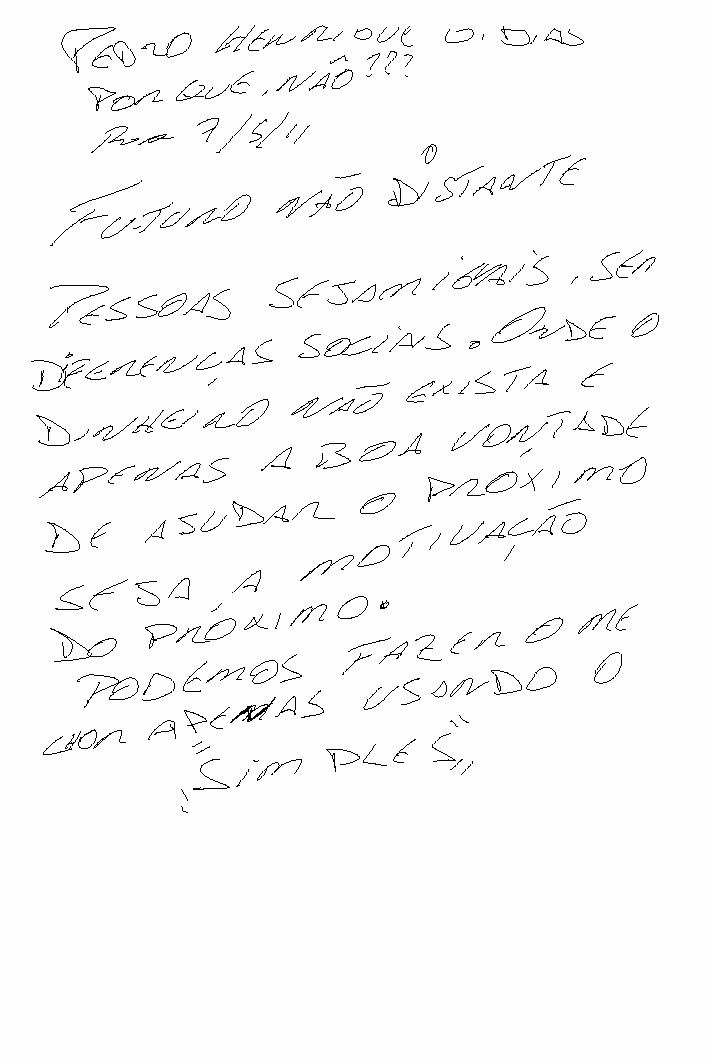 PEDRO HENRIQUE O. DIAS
POR QUE, NÃO???
7/5/11
FUTURO NÃO DISTANTE
PESSOAS SEJAM IGUAIS, SEM
DIFERENÇAS SOCIAIS. ONDE O
DINHEIRO NÃO EXISTA E
APENAS A BOA VONTADE
DE AJUDAR O PRÓXIMO
SEJA, A MOTIVAÇÃO
DO PRÓXIMO.
PODEMOS FAZER O ME
LHOR APENAS USANDO O
"SIMPLES"